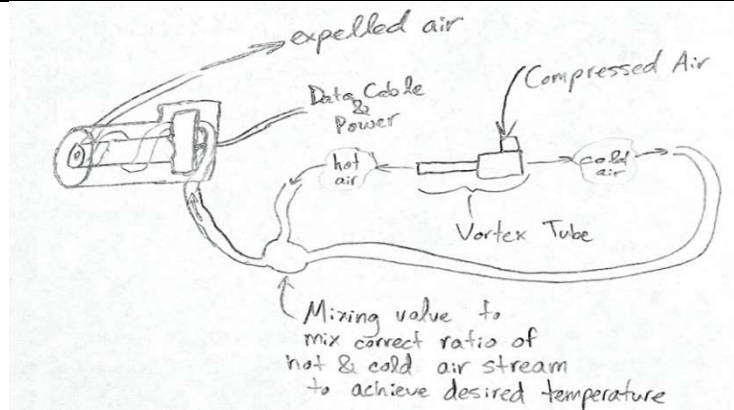 expelled air
Data Cable
&
Power
Compressed Air
hot
air
cold
air
Vortex Tube
Mixing valve to
mix correct ratio of
hot & cold air stream
to achieve desired temperature